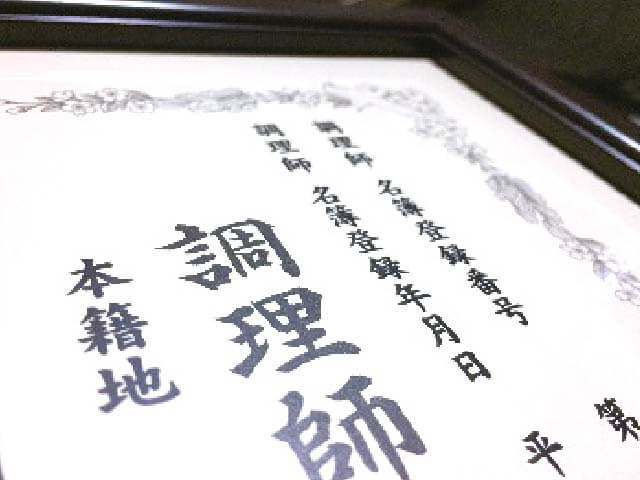 調理師 名簿登録番号
第
調理師 名簿登録年月日
平
調理師
本籍地